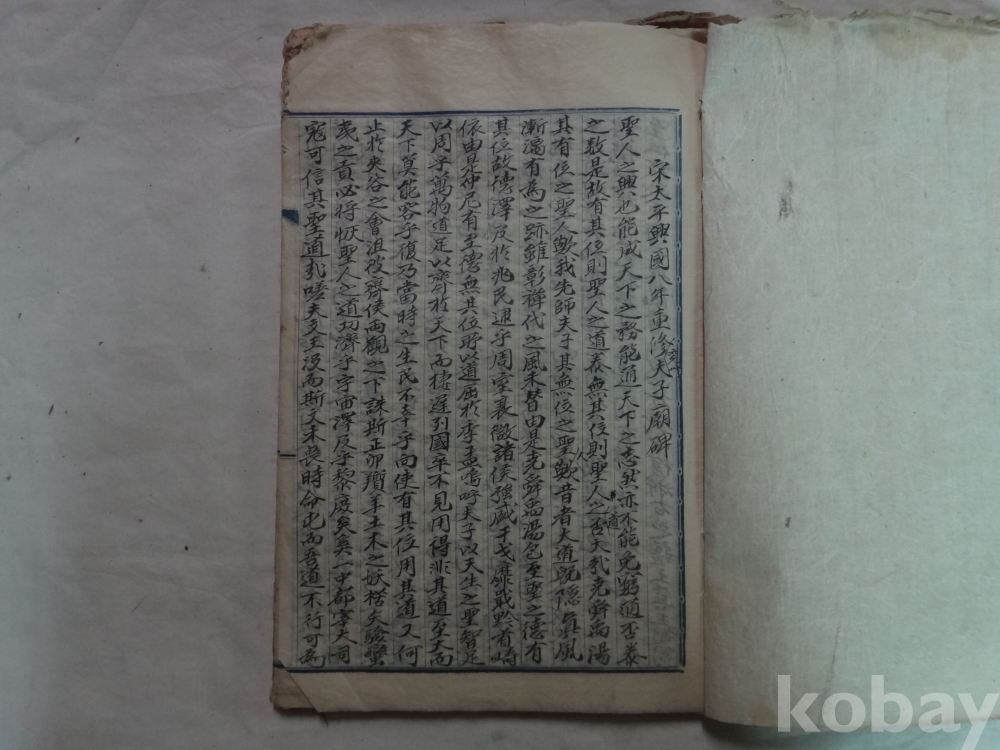 宋太平興國八年重修夫子廟碑
聖人之興也能成天下之務能通天下之志然亦不能免窮通否泰
之数是故有其位則聖人之道泰無其位則聖人之道否大哉堯舜禹湯
其有位之聖人歟我先師夫子其無位之聖人歟昔者大道既隱真風
漸漓有為之跡雖彰禅代之風未替由是堯舜禹湯包至聖之德有
其位故德澤及於兆民逮乎周室衰微諸侯強盛干戈靡戢黔首畴
依由是仲尼有至德無其位所以道屈於季孟嗚呼夫子以天生之聖智足
以周乎萬物道足以齊於天下而棲遲列國卒不見用得非其道至大而
天下莫能容乎復乃當時之生民不幸乎向使有其位用其道又何
止於夾谷之會沮彼齊侯両觀之下誅斯正卯矰羊土木之妖楛矢驗蠻
夷之貢必将恢聖人之道功濟乎宇宙澤及乎黎庶矣奚一中都宰大司
寇可信其聖道哉嗟夫文王没而斯文未喪時命屯而吾道不行可為
kobay